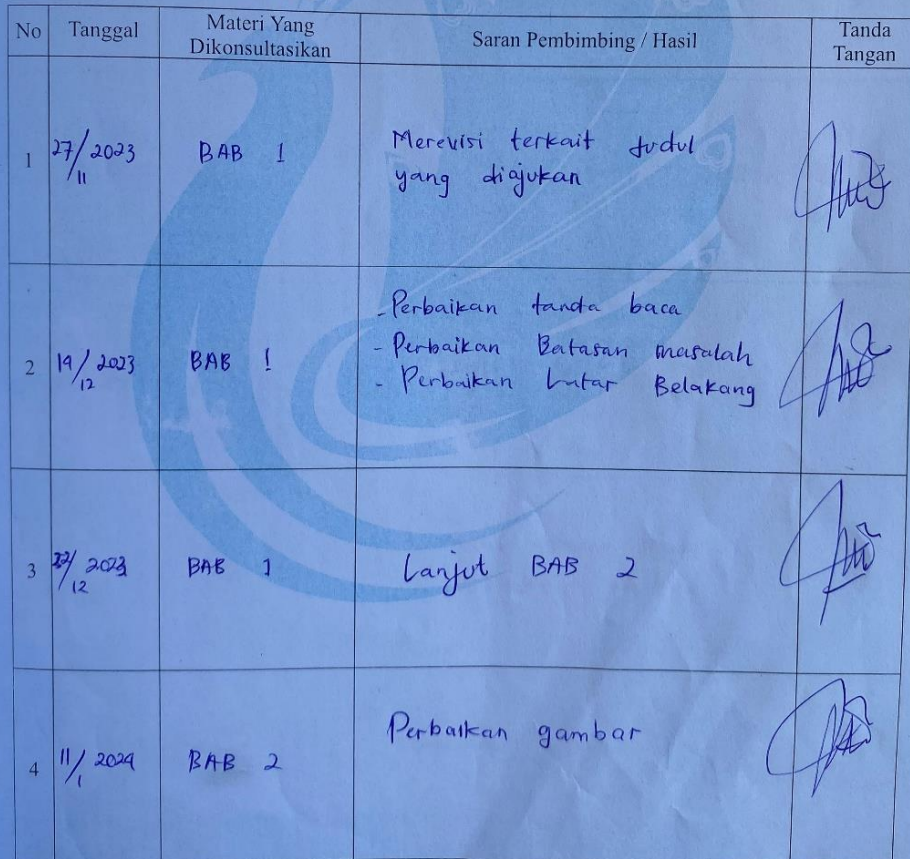 No Tanggal Materi Yang Dikonsultasikan Saran Pembimbing / Hasil Tanda Tangan
1 27/11 2023 BAB 1 Merevisi terkait Judul
yang diajukan
2 19/12 2023 BAB 1 - Perbaikan tanda baca
- Perbaikan Batasan masalah
- Perbaikan Latar Belakang
3 22/12 2023 BAB 1 Lanjut BAB 2
4 11/1 2024 BAB 2 Perbaikan gambar